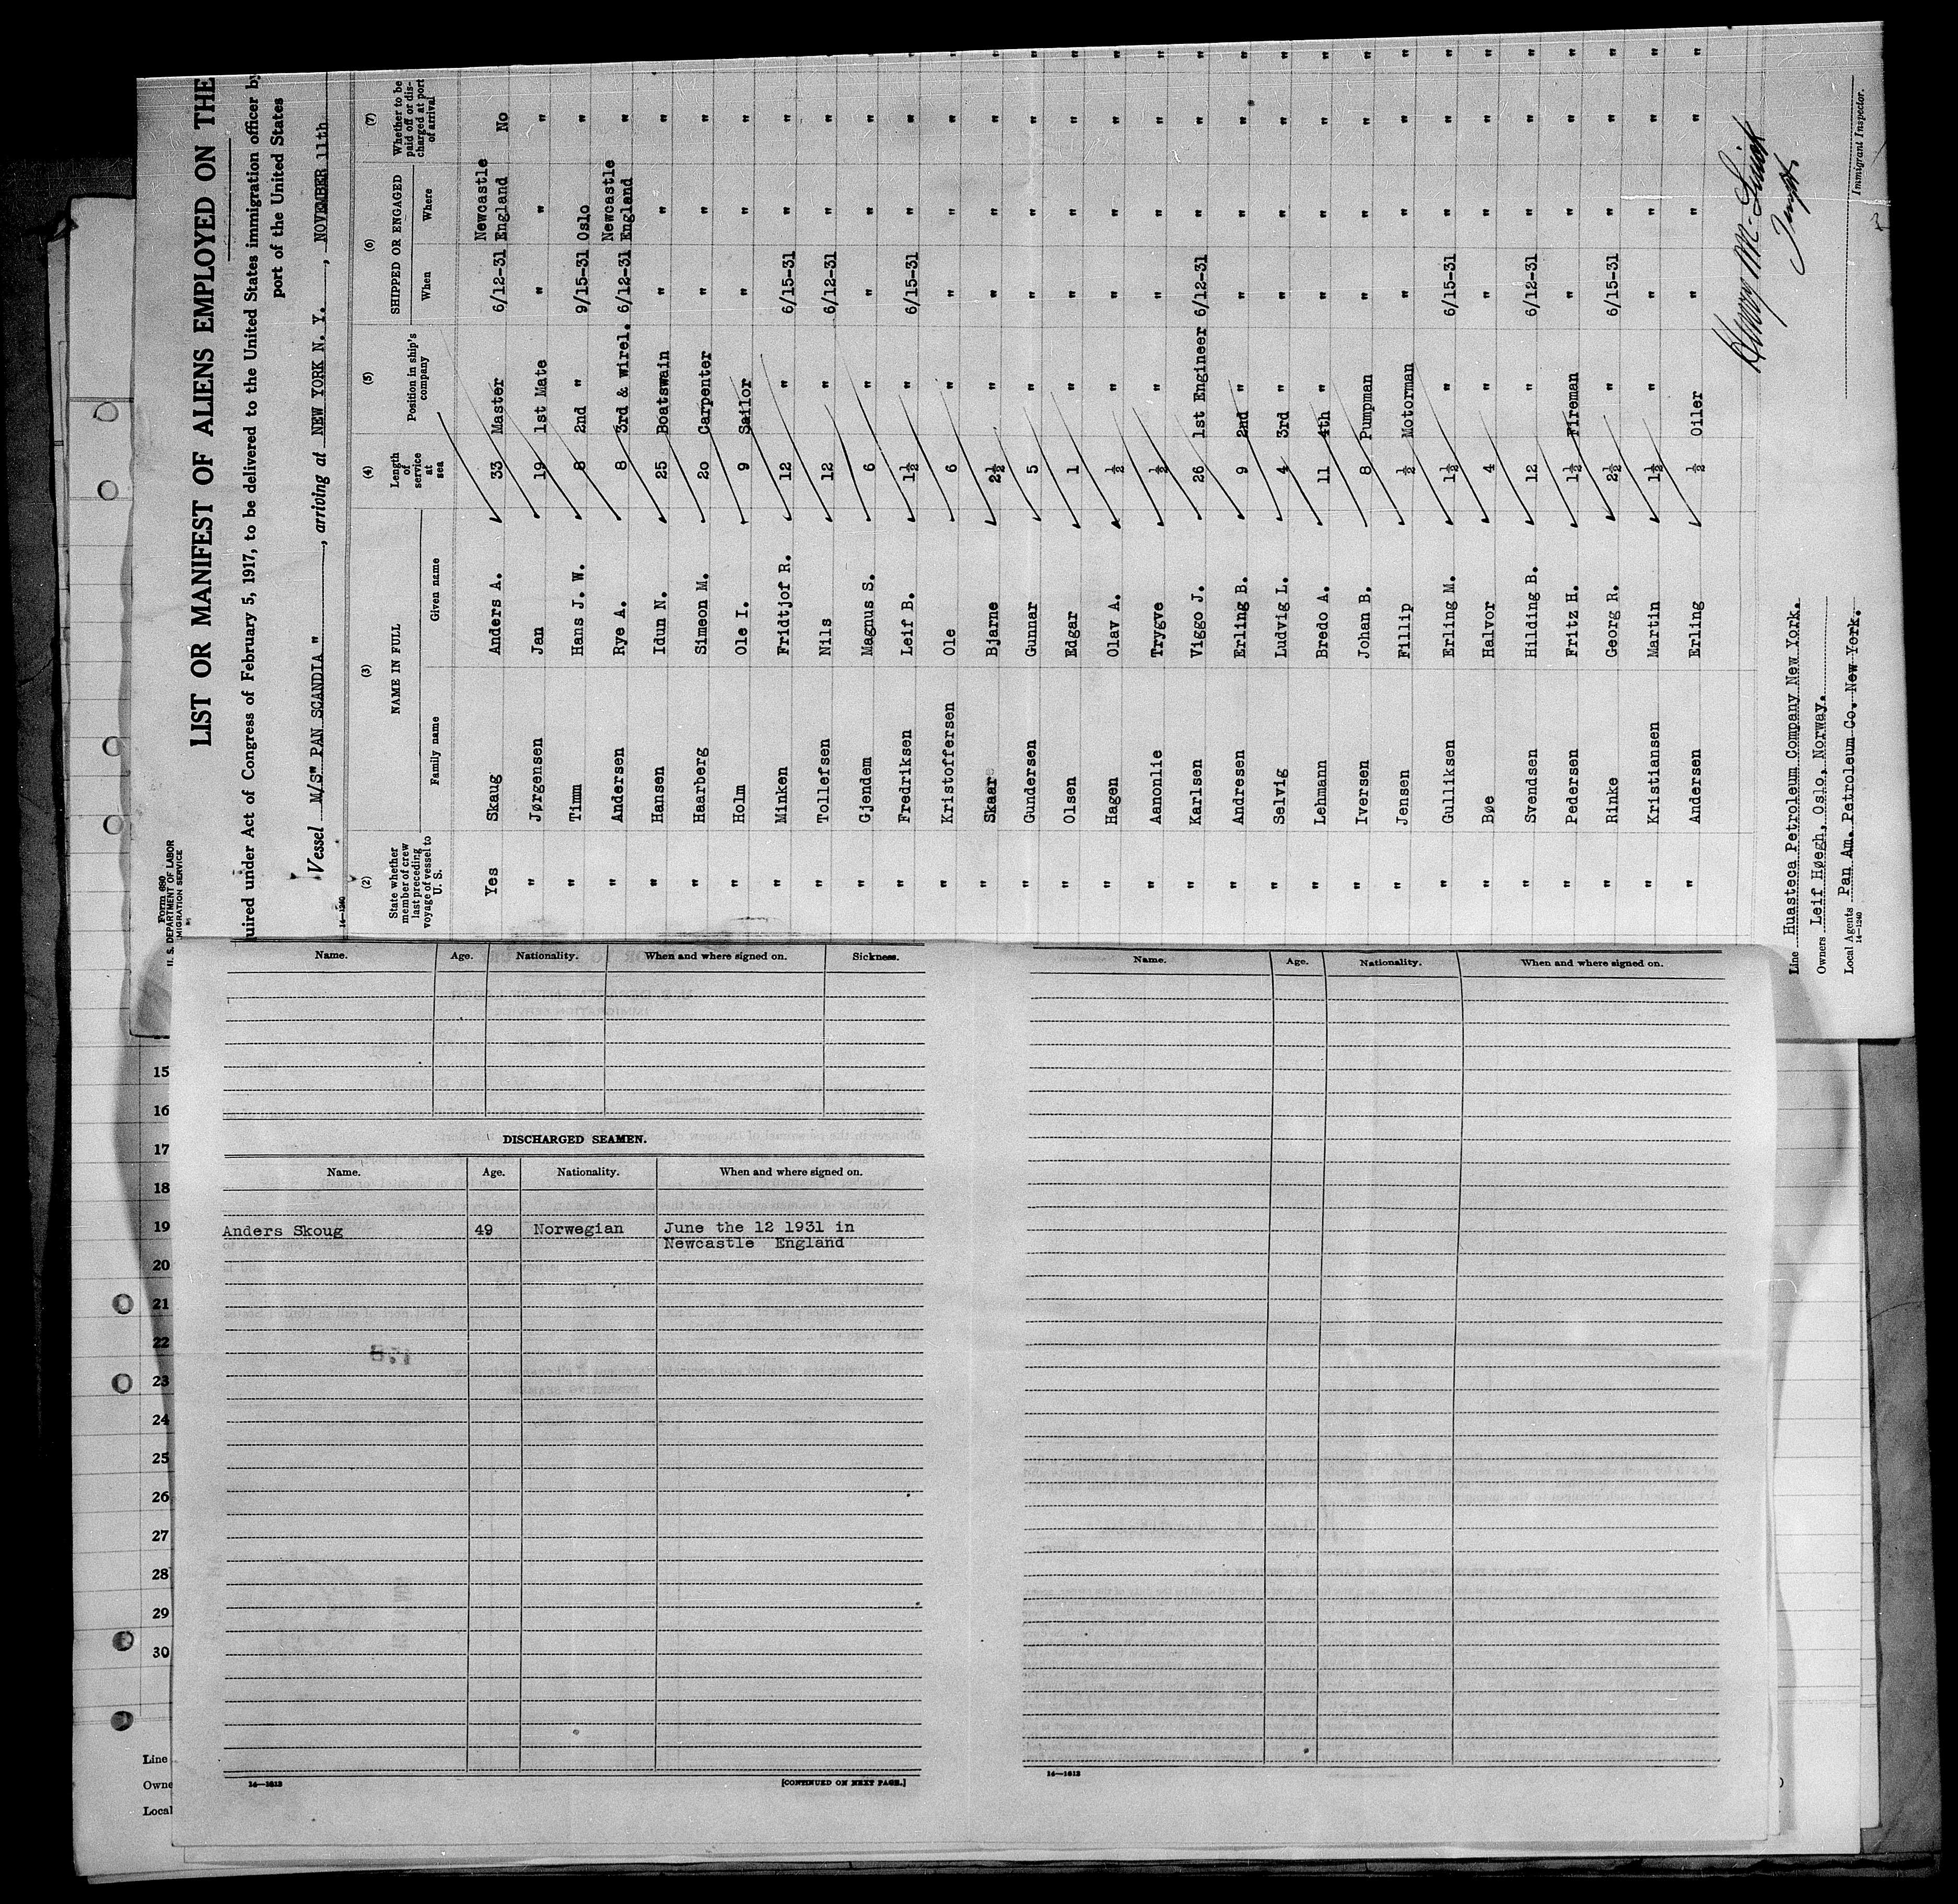 Form 680
U. S. DEPARTMENT OF LABOR
IMMIGRATION SERVICE
LIST OR MANIFEST OF ALIENS EMPLOYED ON THE
quired under Act of Congress of February 5, 1917, to be delivered to the United States immigration officer by
port of the United States
Vessel M/S" PAN SCANDIA " , arriving at NEW YORK N. Y. , NOVEMBER 11th
14—1240
(2) (3) (4) (5) (6) (7)
State whether member of crew last preceding voyage of vessel to U. S.
NAME IN FULL
Family name Given name
Length of service at sea
Position in ship's company
SHIPPED OR ENGAGED
When Where
Whether to be paid off or discharged at port of arrival
Yes Skaug Anders A. 33 Master 6/12-31 Newcastle England No
" Jørgensen Jan 19 1st Mate " " "
" Timm Hans J. W. 8 2nd " 9/15-31 Oslo "
" Andersen Rye A. 8 3rd & wirel. 6/12-31 Newcastle England "
" Hansen Idun N. 25 Boatswain " " "
" Haarberg Simeon M. 20 Carpenter " " "
" Holm Ole I. 9 Sailor " " "
" Minken Fridtjof R. 12 " 6/15-31 " "
" Tollefsen Nils 12 " 6/12-31 " "
" Gjendem Magnus S. 6 " " " "
" Fredriksen Leif B. 1½ " 6/15-31 " "
" Kristoffersen Ole 6 " " " "
" Skaar Bjarne 2½ " " " "
" Gundersen Gunnar 5 " " " "
" Olsen Edgar 1 " " " "
" Hagen Olav A. ½ " " " "
" Aanonlie Trygve ½ " " " "
" Karlsen Viggo J. 26 1st Engineer 6/12-31 " "
" Andresen Erling B. 9 2nd " " " "
" Selvig Ludvig L. 4 3rd " " " "
" Lehmann Bredo A. 11 4th " " " "
" Iversen Johan B. 8 Pumpman " " "
" Jensen Fillip ½ Motorman " " "
" Gulliksen Erling M. 1½ " 6/15-31 " "
" Bøe Halvor 4 " " " "
" Svendsen Hilding B. 12 " 6/12-31 " "
" Pedersen Fritz H. 1½ Fireman " " "
" Rinke Georg R. 2½ " 6/15-31 " "
" Kristiansen Martin 1½ " " " "
" Andersen Erling ½ Oiler " " "
Line Huasteca Petroleum Company New York.
Owners Leif Høegh, Oslo, Norway.
Local Agents Pan Am. Petroleum Co. New York.
14—1240
Immigrant Inspector.
Name. Age. Nationality. When and where signed on. Sickness.
DISCHARGED SEAMEN.
Name. Age. Nationality. When and where signed on.
Anders Skoug 49 Norwegian June the 12 1931 in
Newcastle England
14—1613
[CONTINUED ON NEXT PAGE.]
Name. Age. Nationality. When and where signed on.
14—1613
15
16
17
18
19
20
21
22
23
24
25
26
27
28
29
30
Line
Owne
Local